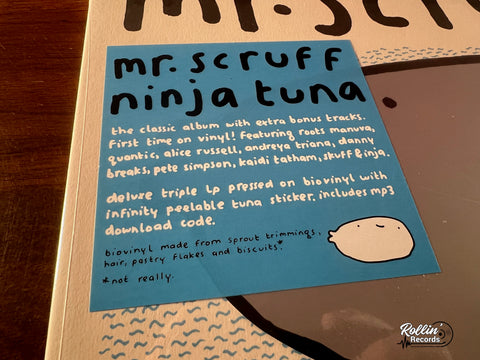 mr. scru
mr. scruff
ninja tuna
the classic album with extra bonus tracks.
first time on vinyl! featuring roots manuva,
quantic, alice russell, andreya triana, danny
breaks, pete simpson, kaidi tatham, skuff & inja.
deluxe triple lp pressed on biovinyl with
infinity peelable tuna sticker. includes mp3
download code.
biovinyl made from sprout trimmings,
hair, pastry flakes and biscuits.*
*not really.
Rollin'
Records